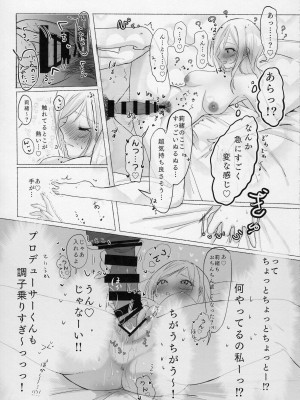 あっ……?
あらっ!?
なんか
急にすごく
変な感じ♡
莉緒のここ
すっごいぬるぬる…
超気持ち良さそう…
んっ…?♡
触れてるとこが
熱い…♡
莉緒?
手が…
って
ちょっとちょっとちょっと!?
何やってるの私ーっ!?
ちがうちがう〜!
じゃあ
入れるよ
うん♡
じゃなーい!!
プロデューサーくんも
調子乗りすぎ〜っっっ!